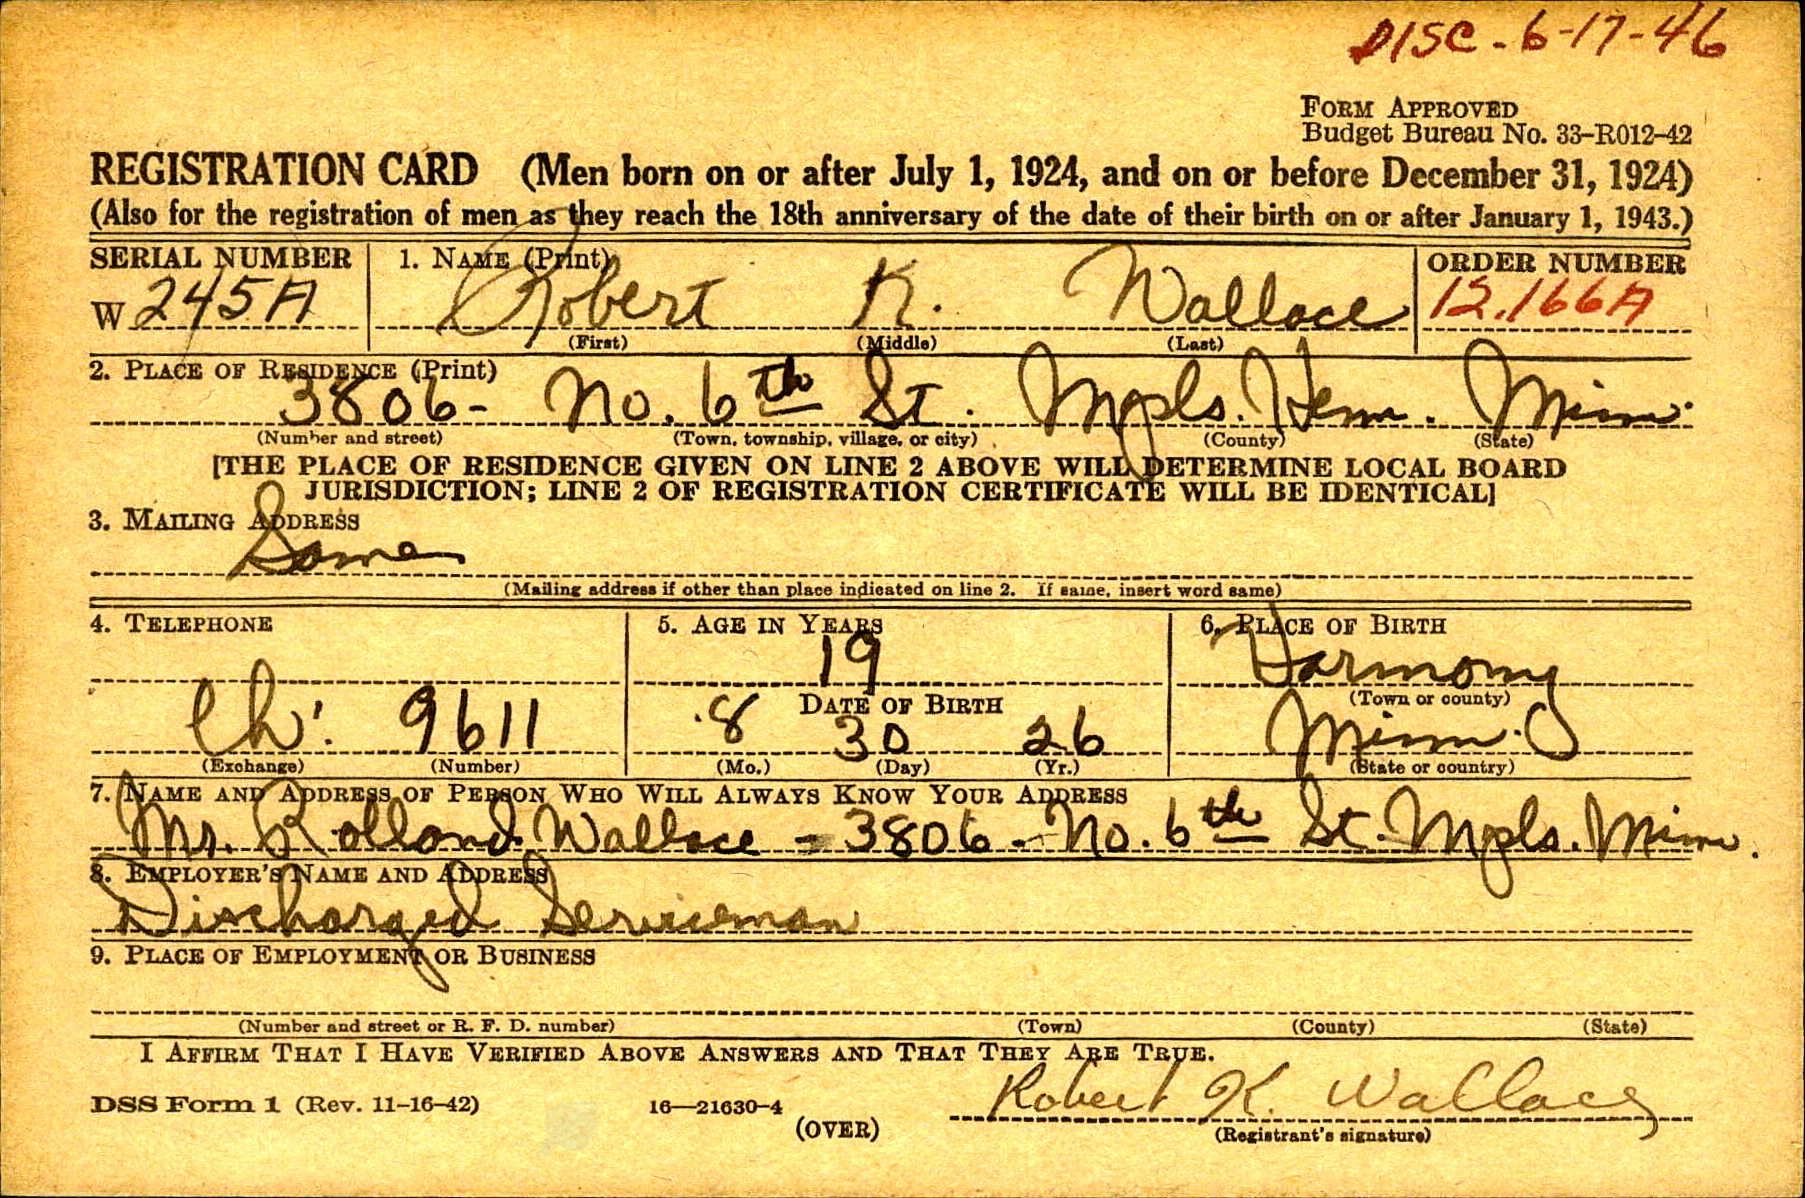 DISC - 6-17-46
FORM APPROVED
Budget Bureau No. 33-R012-42
REGISTRATION CARD (Men born on or after July 1, 1924, and on or before December 31, 1924)
(Also for the registration of men as they reach the 18th anniversary of the date of their birth on or after January 1, 1943.)
SERIAL NUMBER 1. NAME (Print) ORDER NUMBER
W 245A Robert K. Wallace 12,166A
(First) (Middle) (Last)
2. PLACE OF RESIDENCE (Print)
3806 - No. 6th St. Mpls. Henn. Minn.
(Number and street) (Town, township, village, or city) (County) (State)
[THE PLACE OF RESIDENCE GIVEN ON LINE 2 ABOVE WILL DETERMINE LOCAL BOARD
JURISDICTION; LINE 2 OF REGISTRATION CERTIFICATE WILL BE IDENTICAL]
3. MAILING ADDRESS
Same
(Mailing address if other than place indicated on line 2. If same, insert word same)
4. TELEPHONE 5. AGE IN YEARS 6. PLACE OF BIRTH
19 Harmony
DATE OF BIRTH (Town or county)
Ch. 9611 8 30 26 Minn.
(Exchange) (Number) (Mo.) (Day) (Yr.) (State or country)
7. NAME AND ADDRESS OF PERSON WHO WILL ALWAYS KNOW YOUR ADDRESS
Mr. Rolland Wallace - 3806 - No. 6th St. Mpls. Minn.
8. EMPLOYER'S NAME AND ADDRESS
Discharged Serviceman
9. PLACE OF EMPLOYMENT OR BUSINESS
(Number and street or R. F. D. number) (Town) (County) (State)
I AFFIRM THAT I HAVE VERIFIED ABOVE ANSWERS AND THAT THEY ARE TRUE.
Robert K. Wallace
DSS Form 1 (Rev. 11-16-42) 16—21630-4
(OVER) (Registrant's signature)